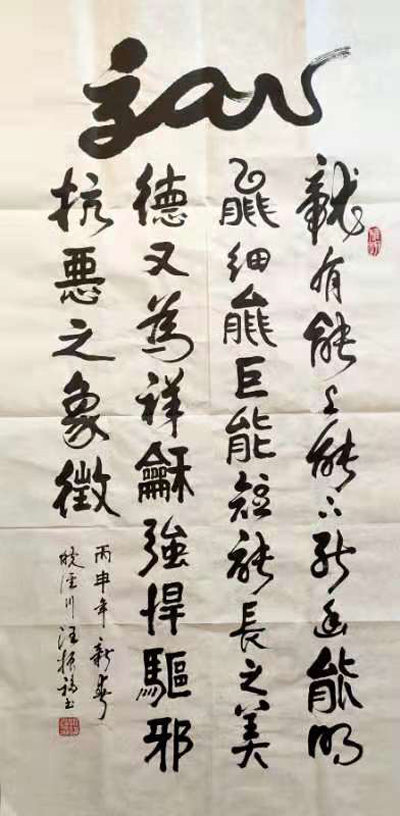 龍
龍有能上能下能幽能明
能細能巨能短能長之美
德又為祥龢強悍驅邪
抗惡之象徵
丙申年新春
川汪振書